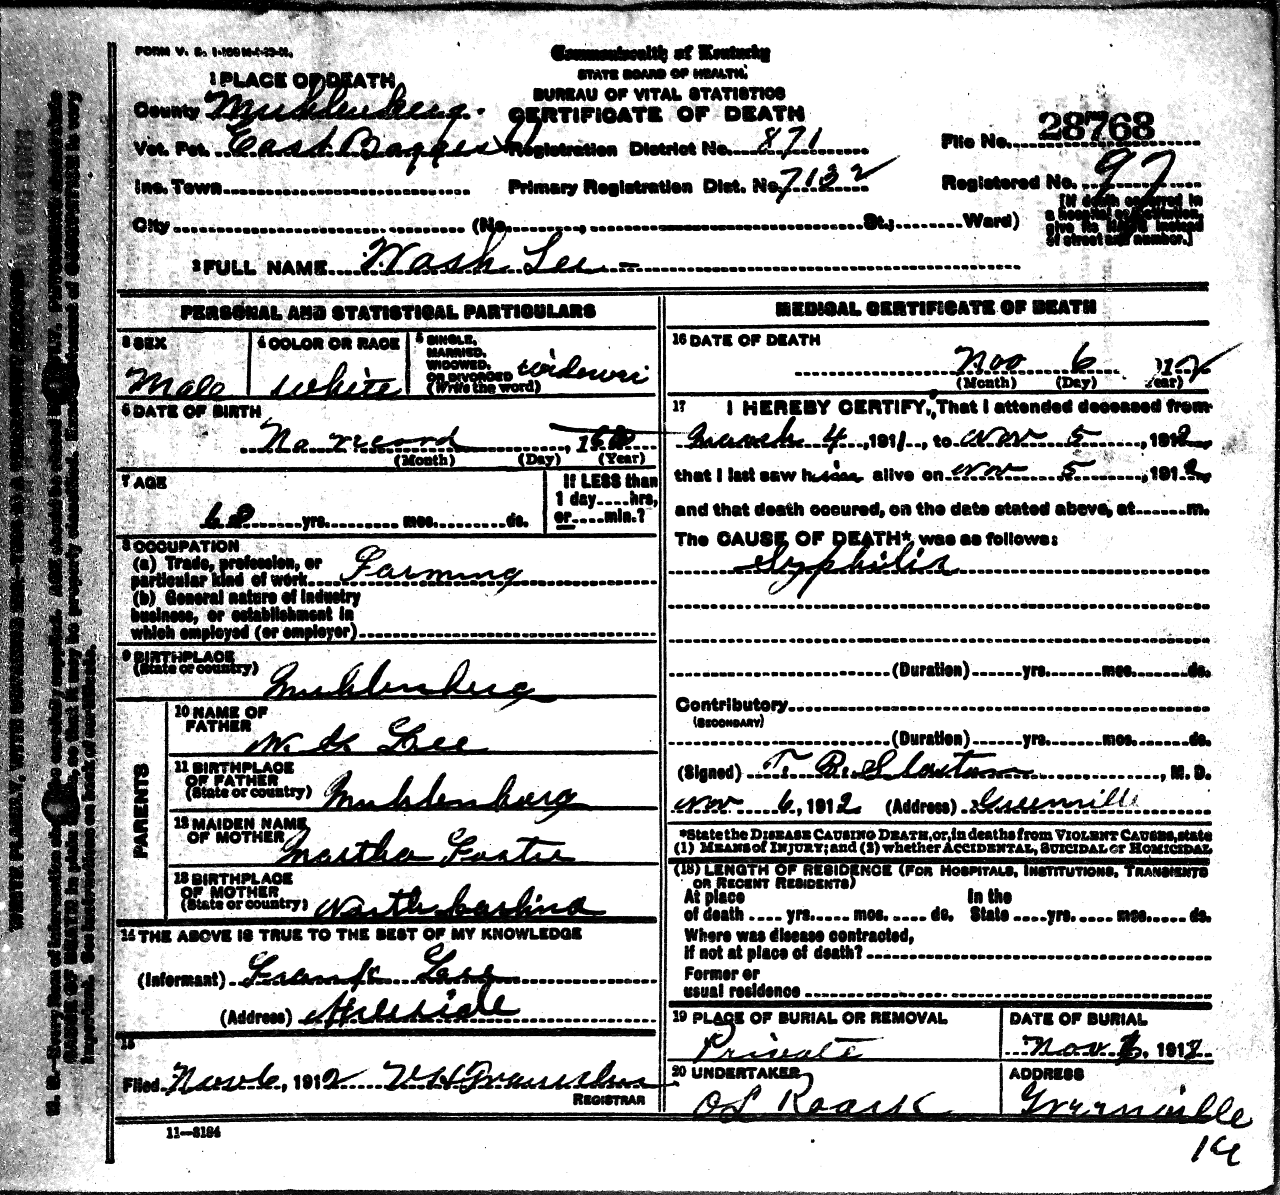 FORM V. S.
Commonwealth of Kentucky
STATE BOARD OF HEALTH.
BUREAU OF VITAL STATISTICS
CERTIFICATE OF DEATH
1 PLACE OF DEATH
County Muhlenberg.
Vot. Pct. East
Registration District No. 871
File No. 28768
Inc. Town
Primary Registration Dist. No. 7132
Registered No. 97
City (No. , St.; Ward)
[If death occurred in
a hospital or institution,
give its NAME instead
of street and number.]
2 FULL NAME Wash Lee
PERSONAL AND STATISTICAL PARTICULARS
3 SEX
Male
4 COLOR OR RACE
White
5 SINGLE,
MARRIED,
WIDOWED,
OR DIVORCED
(Write the word)
6 DATE OF BIRTH
No record
(Month) (Day) (Year)
7 AGE
68 yrs. mos. ds.
If LESS than
1 day....hrs,
or....min.?
8 OCCUPATION
(a) Trade, profession, or
particular kind of work Farming
(b) General nature of industry
business, or establishment in
which employed (or employer)
9 BIRTHPLACE
(State or country)
Muhlenberg
PARENTS
10 NAME OF
FATHER
Lee
11 BIRTHPLACE
OF FATHER
(State or country) Muhlenburg
12 MAIDEN NAME
OF MOTHER
Martha
13 BIRTHPLACE
OF MOTHER
(State or country) North Carlina
14 THE ABOVE IS TRUE TO THE BEST OF MY KNOWLEDGE
(Informant) Frank Lee
(Address) Hillside
15
Filed Nov 6, 1912
REGISTRAR
11—3184
MEDICAL CERTIFICATE OF DEATH
16 DATE OF DEATH
Nov 6 1912
(Month) (Day) (Year)
17 I HEREBY CERTIFY, That I attended deceased from
March 4, 1911, to Nov 5, 1912,
that I last saw him alive on Nov 5, 1912,
and that death occured, on the date stated above, at m.
The CAUSE OF DEATH* was as follows:
Syphilis
(Duration) yrs. mos. ds.
Contributory
(SECONDARY)
(Duration) yrs. mos. ds.
(Signed) T. B. , M. D.
Nov 6, 1912 (Address) Greenville
*State the DISEASE CAUSING DEATH, or, in deaths from VIOLENT CAUSES, state
(1) MEANS of INJURY; and (2) whether ACCIDENTAL, SUICIDAL or HOMICIDAL
(18) LENGTH OF RESIDENCE (FOR HOSPITALS, INSTITUTIONS, TRANSIENTS
OR RECENT RESIDENTS)
At place In the
of death .... yrs. mos. ds. State .... yrs. mos. ds.
Where was disease contracted,
if not at place of death?
Former or
usual residence
19 PLACE OF BURIAL OR REMOVAL
Private
DATE OF BURIAL
Nov , 1912
20 UNDERTAKER
Roark
ADDRESS
Greenville